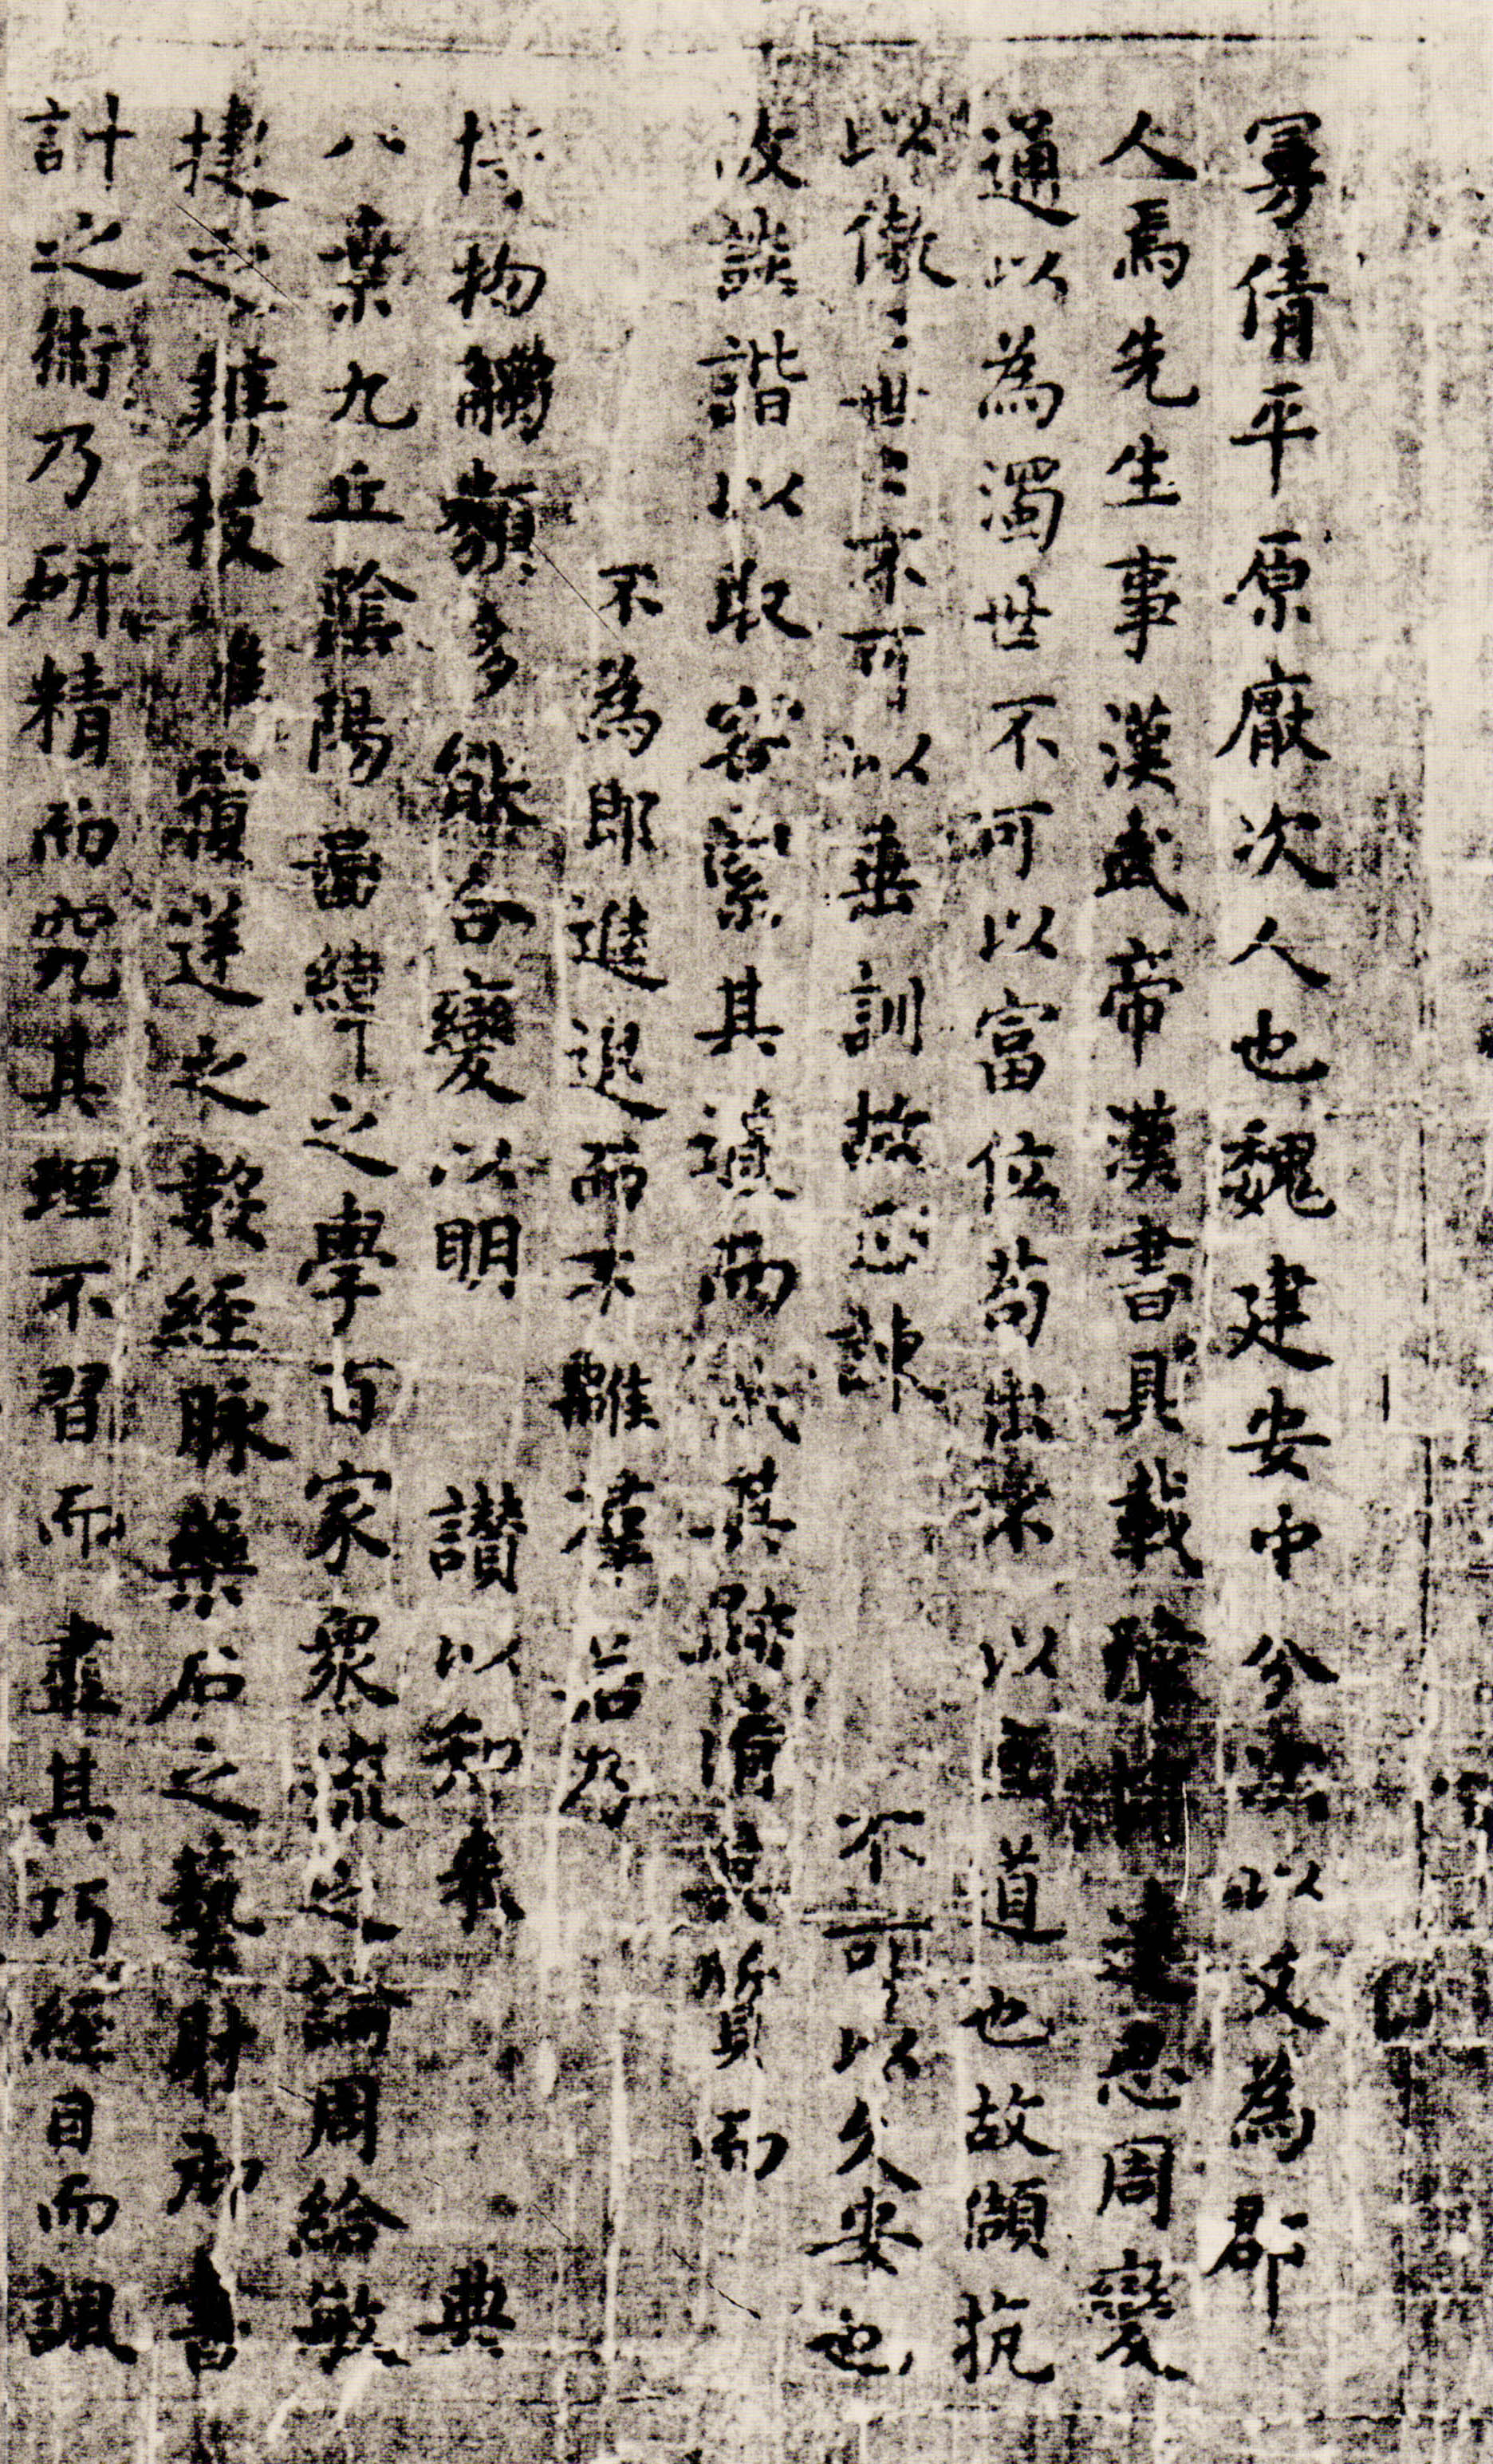 㝢倩平原厭次人也魏建安中分厭次以為郡
人焉先生事漢武帝漢書具載 達思周變
通以為濁世不可以富 位苟出 以直道也故頡抗
以傲〻世〻不可以垂訓故正諫 不可以久安也
故詼諧以取容潔其道而 其跡清其質而
不為耶進退而不離 若乃
物觸類多能合變以明 讃以知來 典
八索九丘陰陽圖緯之學百家衆流之論周給敏
捷之辯枝 覆逆之數經脉藥石之藝射御書
計之術乃研精而究其理不習而盡其巧經目而諷